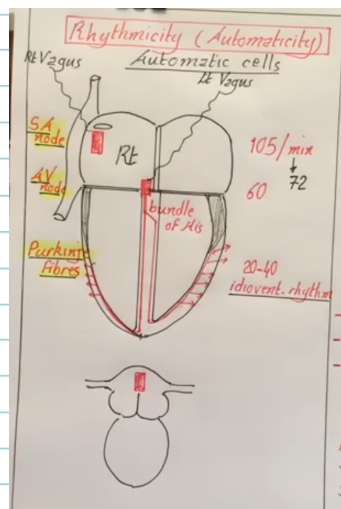 Rhythmicity (Automaticity)
Automatic cells
Rt Vagus
Lt Vagus
SA
node
Rt
105/min
72
AV
node
60
bundle
of His
Purkinje
fibres
20-40
idiovent. rhythm